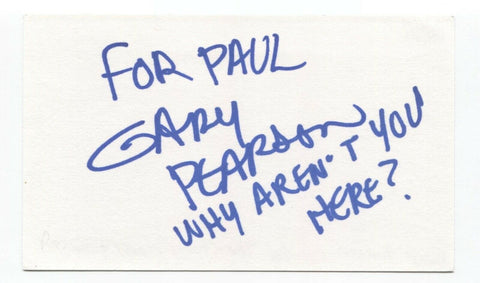 FOR PAUL
GARY
PEARSON
WHY AREN'T YOU
HERE?